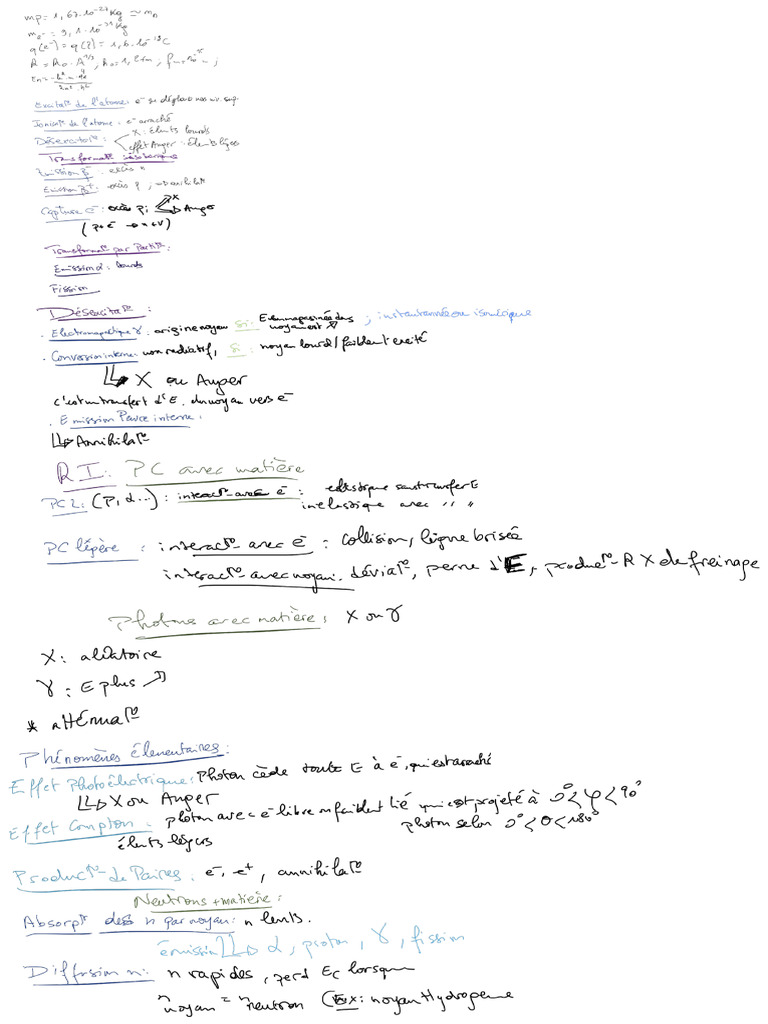 mp = 1,67.10⁻²⁷ Kg ≃ mn
me- = 9,1.10⁻³¹ Kg
q(e⁻) = q(p) = 1,6.10⁻¹⁹ C
R = R₀.A^1/3, R₀ = 1,2 fm, fm = 10⁻¹⁵ m ;
Excitat° de l'atome : e⁻ se déplace vers niv. sup.
Ionisat° de l'atome : e⁻ arraché
Désexcitat° : X : Élents lourds
effet Auger : Élents légers
Transformat° isobariques
Emission β⁻ : excès n
Emission β⁺ : excès p ; → annihilat°
Capture e⁻ : excès p ; X
Auger
(p+e⁻ → n+ν)
Transformat° par Partit° :
Emission α : lourds
Fission
Désexcitat° :
. Electromagnétique γ : origine noyau si : E emmagasinée dans noyau est ↗ ; instantannée ou isomérique
. Conversion interne : non radiatif, si : noyau lourd / faiblent excité
↳ X ou Auger
c'est un transfert d'E. du noyau vers e⁻
. Emission Paire interne.
↳ Annihilat°
RI : PC avec matière
PC L : (p, α...) : interact° avec e⁻ : élastique sans transfert E
inélastique avec " "
PC légère : interact° avec e⁻ : collision, ligne brisée
interact° avec noyau : déviat°, perte d'E, product° R X de freinage
Photons avec matière : X ou γ
X : aléatoire
γ : E plus ↗
* atténuat°
Phénomènes élementaires :
Effet Photoélectrique : Photon cède toute E à e⁻, qui est arraché
↳ X ou Auger
Effet Compton : photon avec e⁻ libre ou faiblent lié qui est projeté à 0° < φ < 90°
élents légers photon selon 0° < θ < 180°
Product° de Paires : e⁻, e⁺, annihilat°
Neutrons + matière :
Absorpt° des n par noyau : n lents.
émission ↳ α, proton, γ, fission
Diffusion n : n rapides, perd Ec lorsque
m noyau = m neutron (Ex : noyau Hydrogene